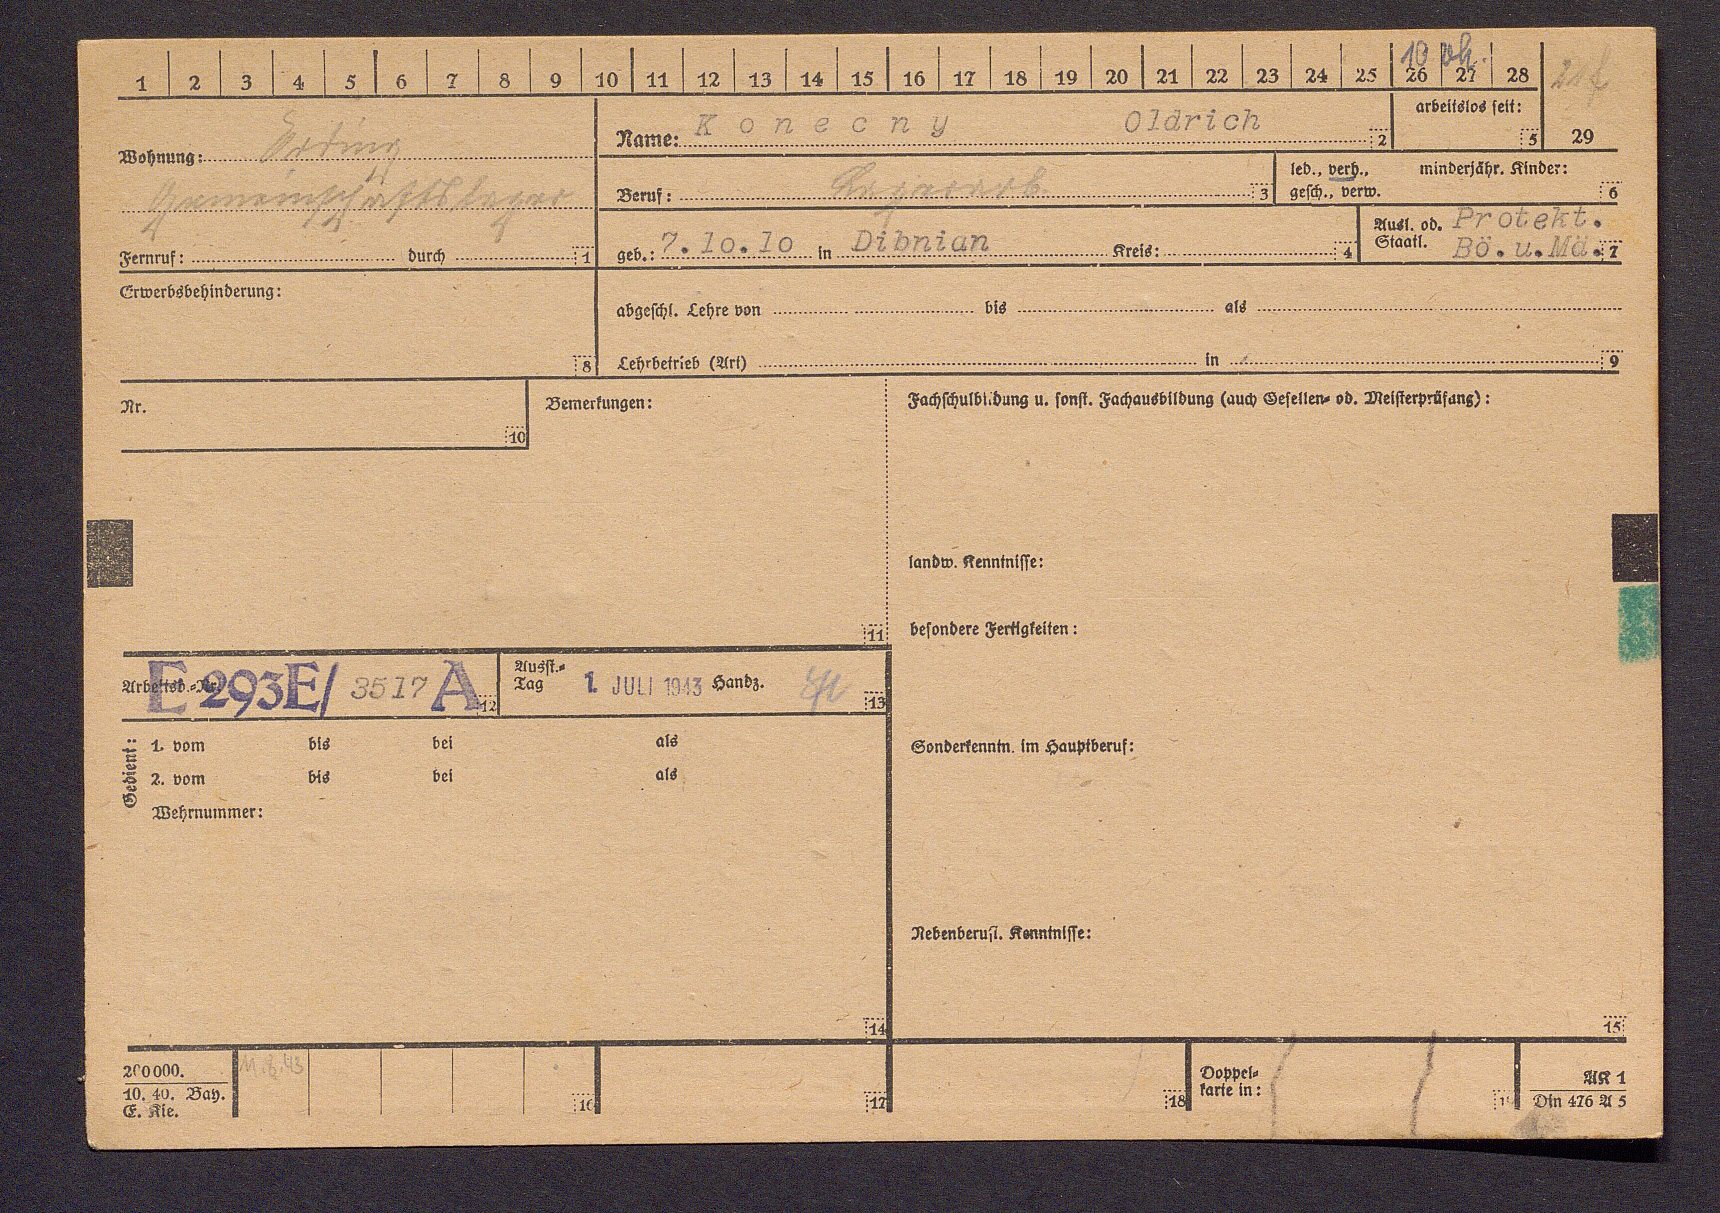 1 2 3 4 5 6 7 8 9 10 11 12 13 14 15 16 17 18 19 20 21 22 23 24 25 26 27 28
10
Wohnung: Erding
Gemeinschaftslager
Fernruf: durch 1
Name: Konecny Oldrich 2
arbeitslos seit: 5
29
Beruf: 3
led., verh., gesch., verw.
minderjähr. Kinder: 6
geb.: 7.10.10 in Dibnian Kreis: 4
Ausl. od. Staatl. Protekt.
Bö.u.Mä. 7
Erwerbsbehinderung:
8
abgeschl. Lehre von bis als
Lehrbetrieb (Art) in 9
Nr.
10
Bemerkungen:
11
Fachschulbildung u. sonst. Fachausbildung (auch Gesellen- od. Meisterprüfang):
landw. Kenntnisse:
besondere Fertigkeiten:
Arbeitsb.-Nr. E 293E/ 3517 A 12
Ausst.-Tag 1. JULI 1943 Handz. 13
Gedient:
1. vom bis bei als
2. vom bis bei als
Wehrnummer:
14
Sonderkenntn. im Hauptberuf:
Nebenberufl. Kenntnisse:
15
200000.
10. 40. Bay.
E. Kle.
11.8.43
16
17
18
Doppel-
karte in:
AK 1
Din 476 A 5